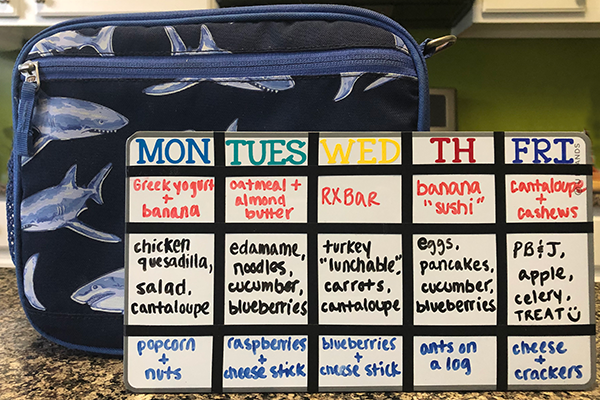 MON TUES WED TH FRI
Greek yogurt
+
banana
oatmeal +
almond
butter
RXBAR
banana
"sushi"
cantaloupe
+
cashews
chicken
quesadilla,
salad,
cantaloupe
edamame,
noodles,
cucumber,
blueberries
turkey
"lunchable",
carrots,
cantaloupe
eggs,
pancakes,
cucumber,
blueberries
PB&J,
apple,
celery,
TREAT
popcorn
+
nuts
raspberries
+
cheese stick
blueberries
+
cheese stick
ants on
a log
cheese
+
crackers